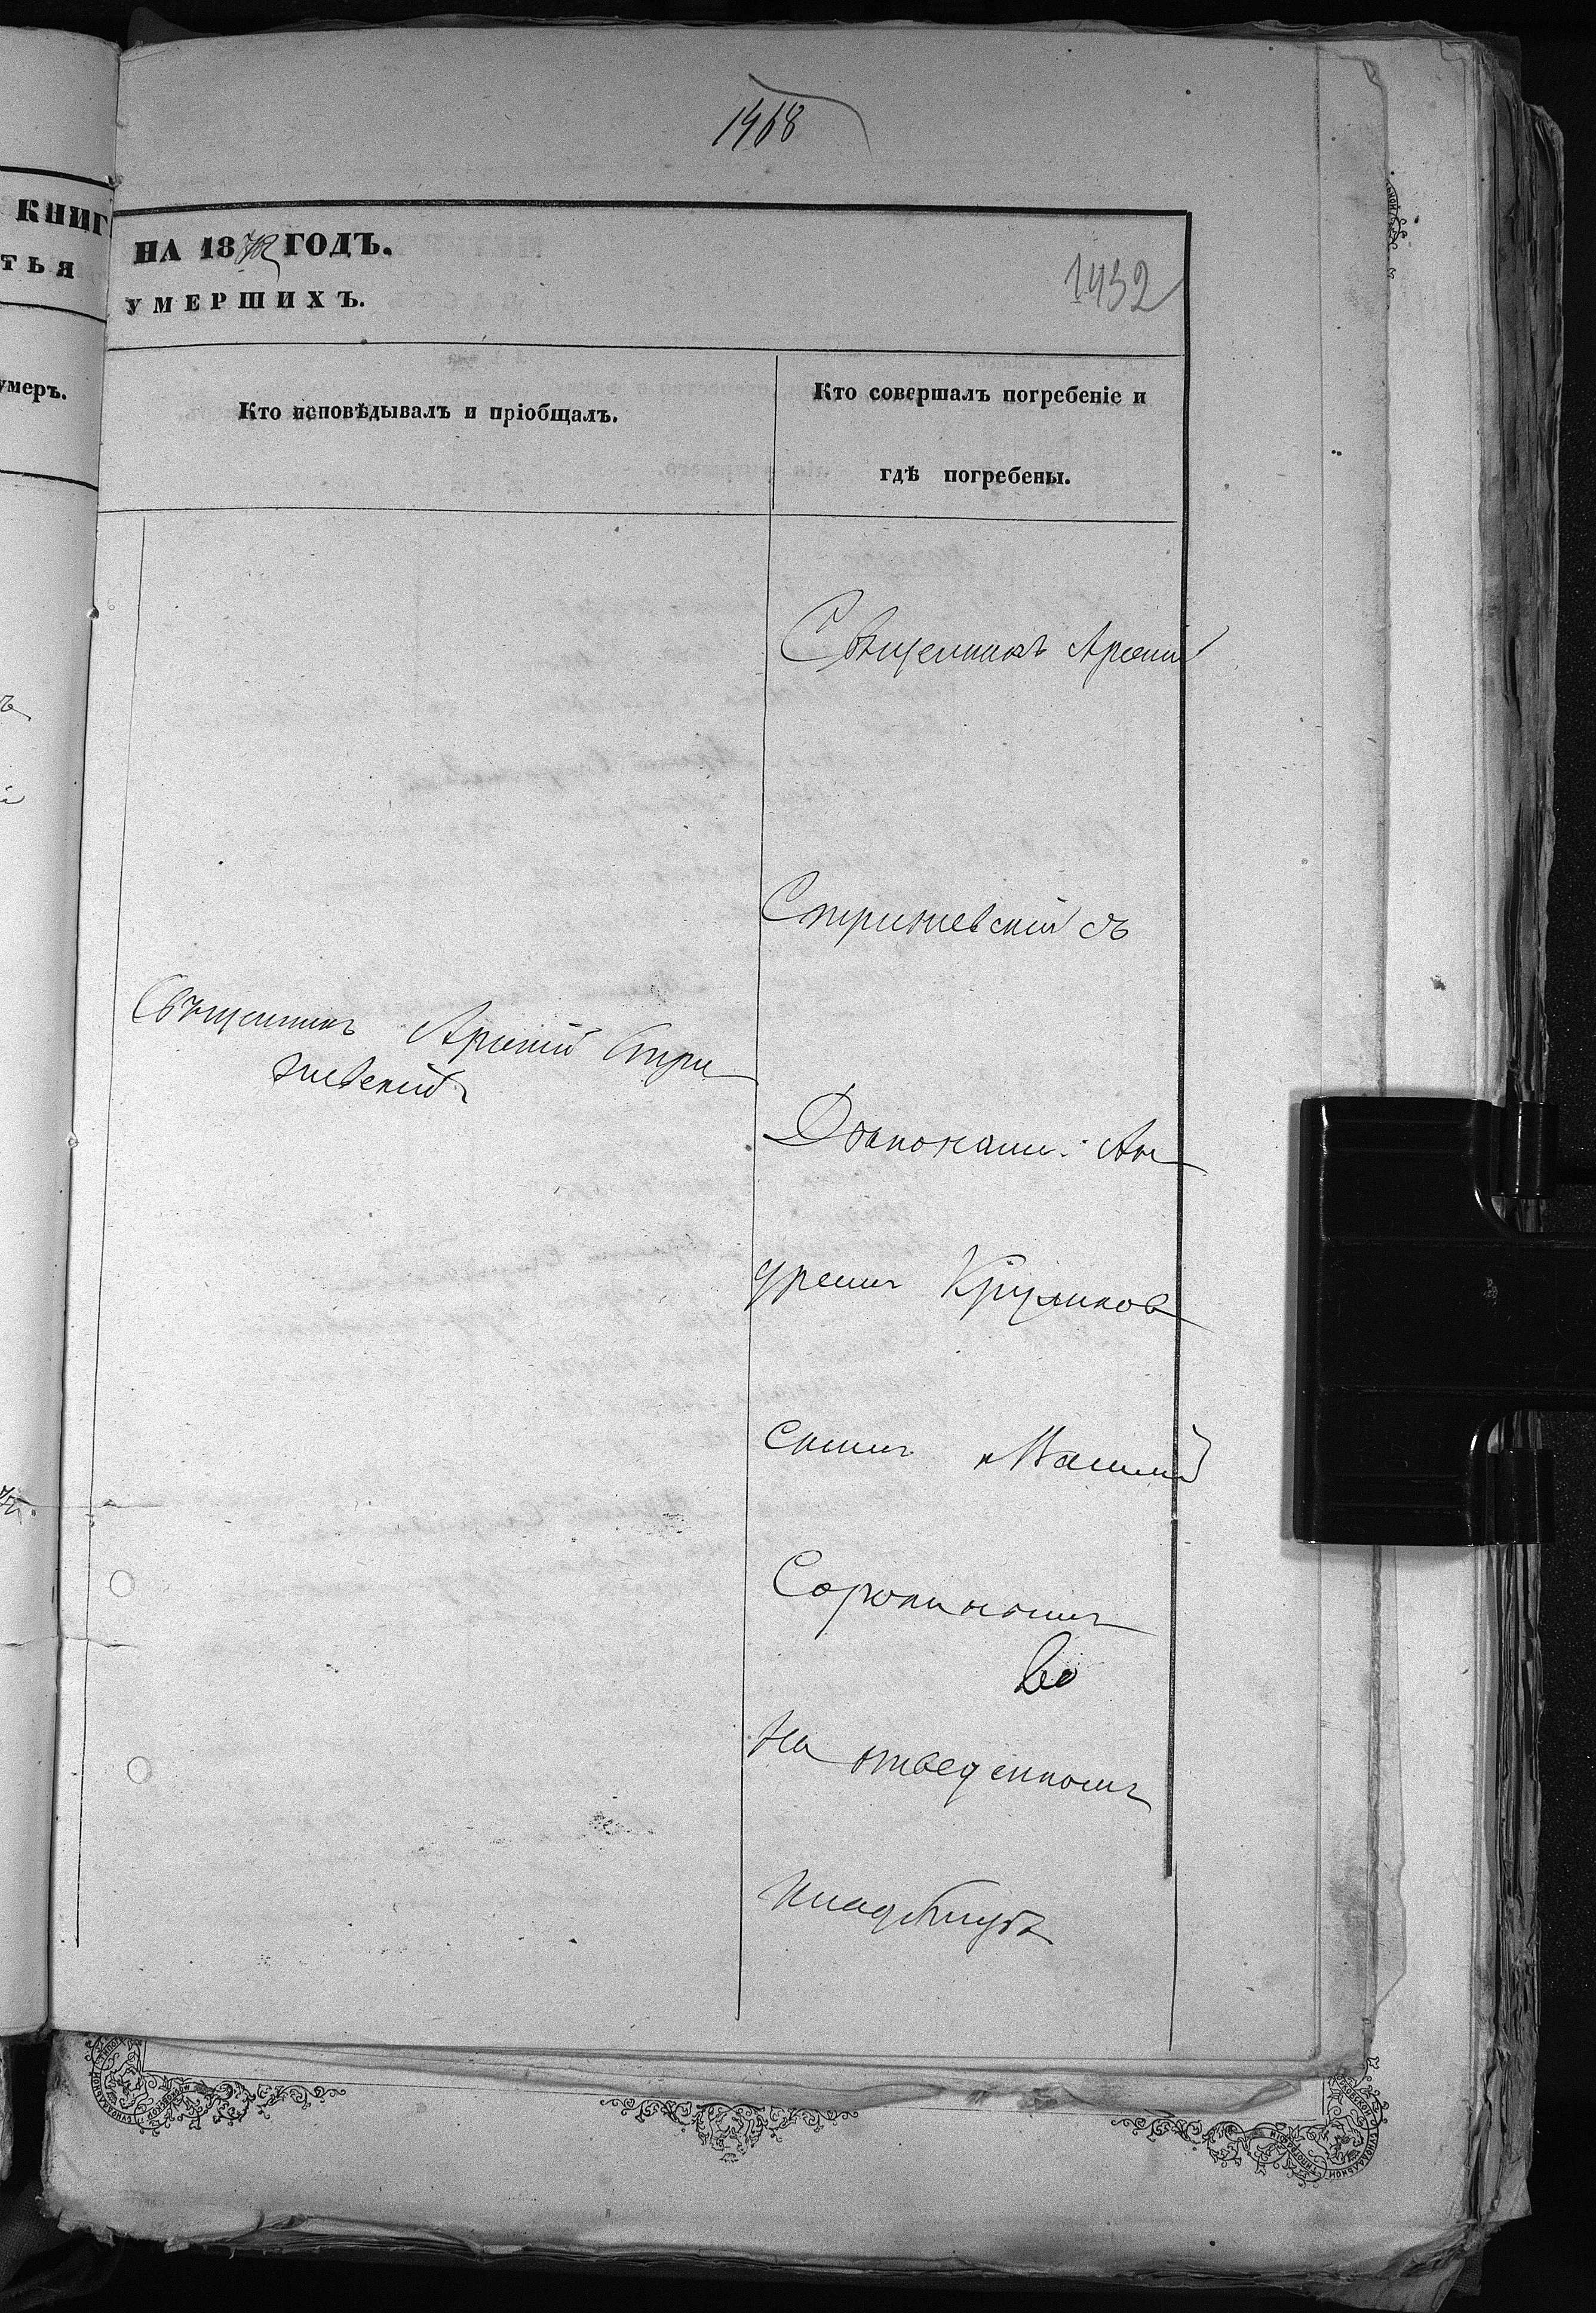 1468
КНИГ
НА 1872 ГОДЪ.
ТЬЯ
УМЕРШИХЪ.
1432
умеръ.
Кто исповѣдывалъ и пріобщалъ.
Кто совершалъ погребеніе и
гдѣ погребены.
Священникъ Арсеній
Стриженевскій съ
Священникъ Арсеній Стри
жевскій
Дьячками: Ан
дреемъ Кругликов
скимъ и Василій
Сорокинымъ
во
На отведенномъ
кладбищѣ